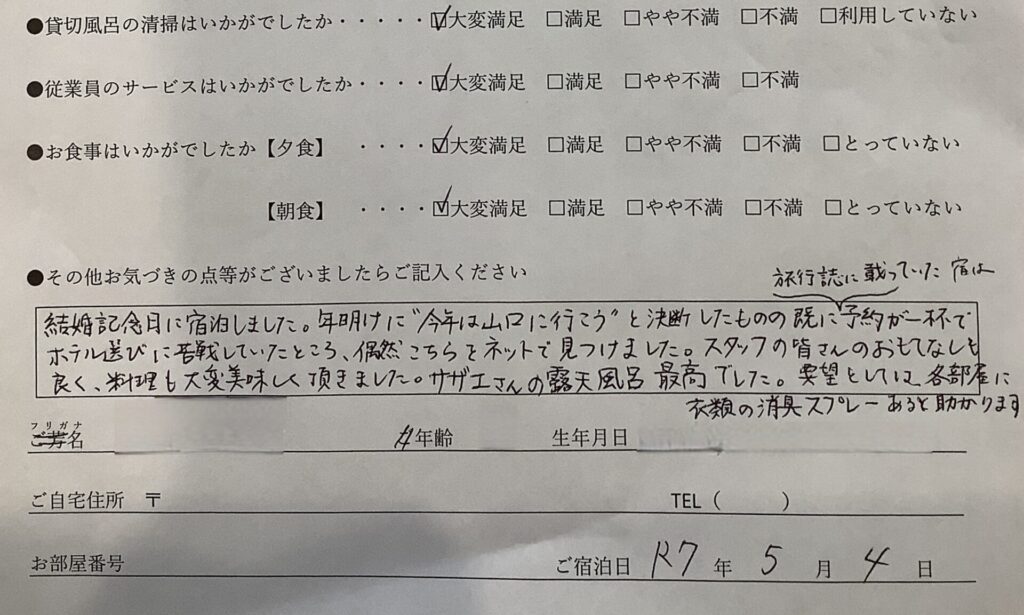 ●貸切風呂の清掃はいかがでしたか・・・・・☑大変満足 □満足 □やや不満 □不満 □利用していない
●従業員のサービスはいかがでしたか・・・・☑大変満足 □満足 □やや不満 □不満
●お食事はいかがでしたか【夕食】 ・・・・☑大変満足 □満足 □やや不満 □不満 □とっていない
【朝食】 ・・・・☑大変満足 □満足 □やや不満 □不満 □とっていない
●その他お気づきの点等がございましたらご記入ください
旅行誌に載っていた宿は
結婚記念日に宿泊しました。年明けに"今年は山口に行こう"と決断したものの既に予約が一杯で
ホテル選びに苦戦していたところ、偶然こちらをネットで見つけました。スタッフの皆さんのおもてなしも
良く、料理も大変美味しく頂きました。サザエさんの露天風呂 最高でした。要望としては、各部屋に
衣類の消臭スプレーあると助かります
フリガナ
ご芳名 年齢 生年月日
ご自宅住所 〒 TEL( )
お部屋番号 ご宿泊日 R7年 5月 4日